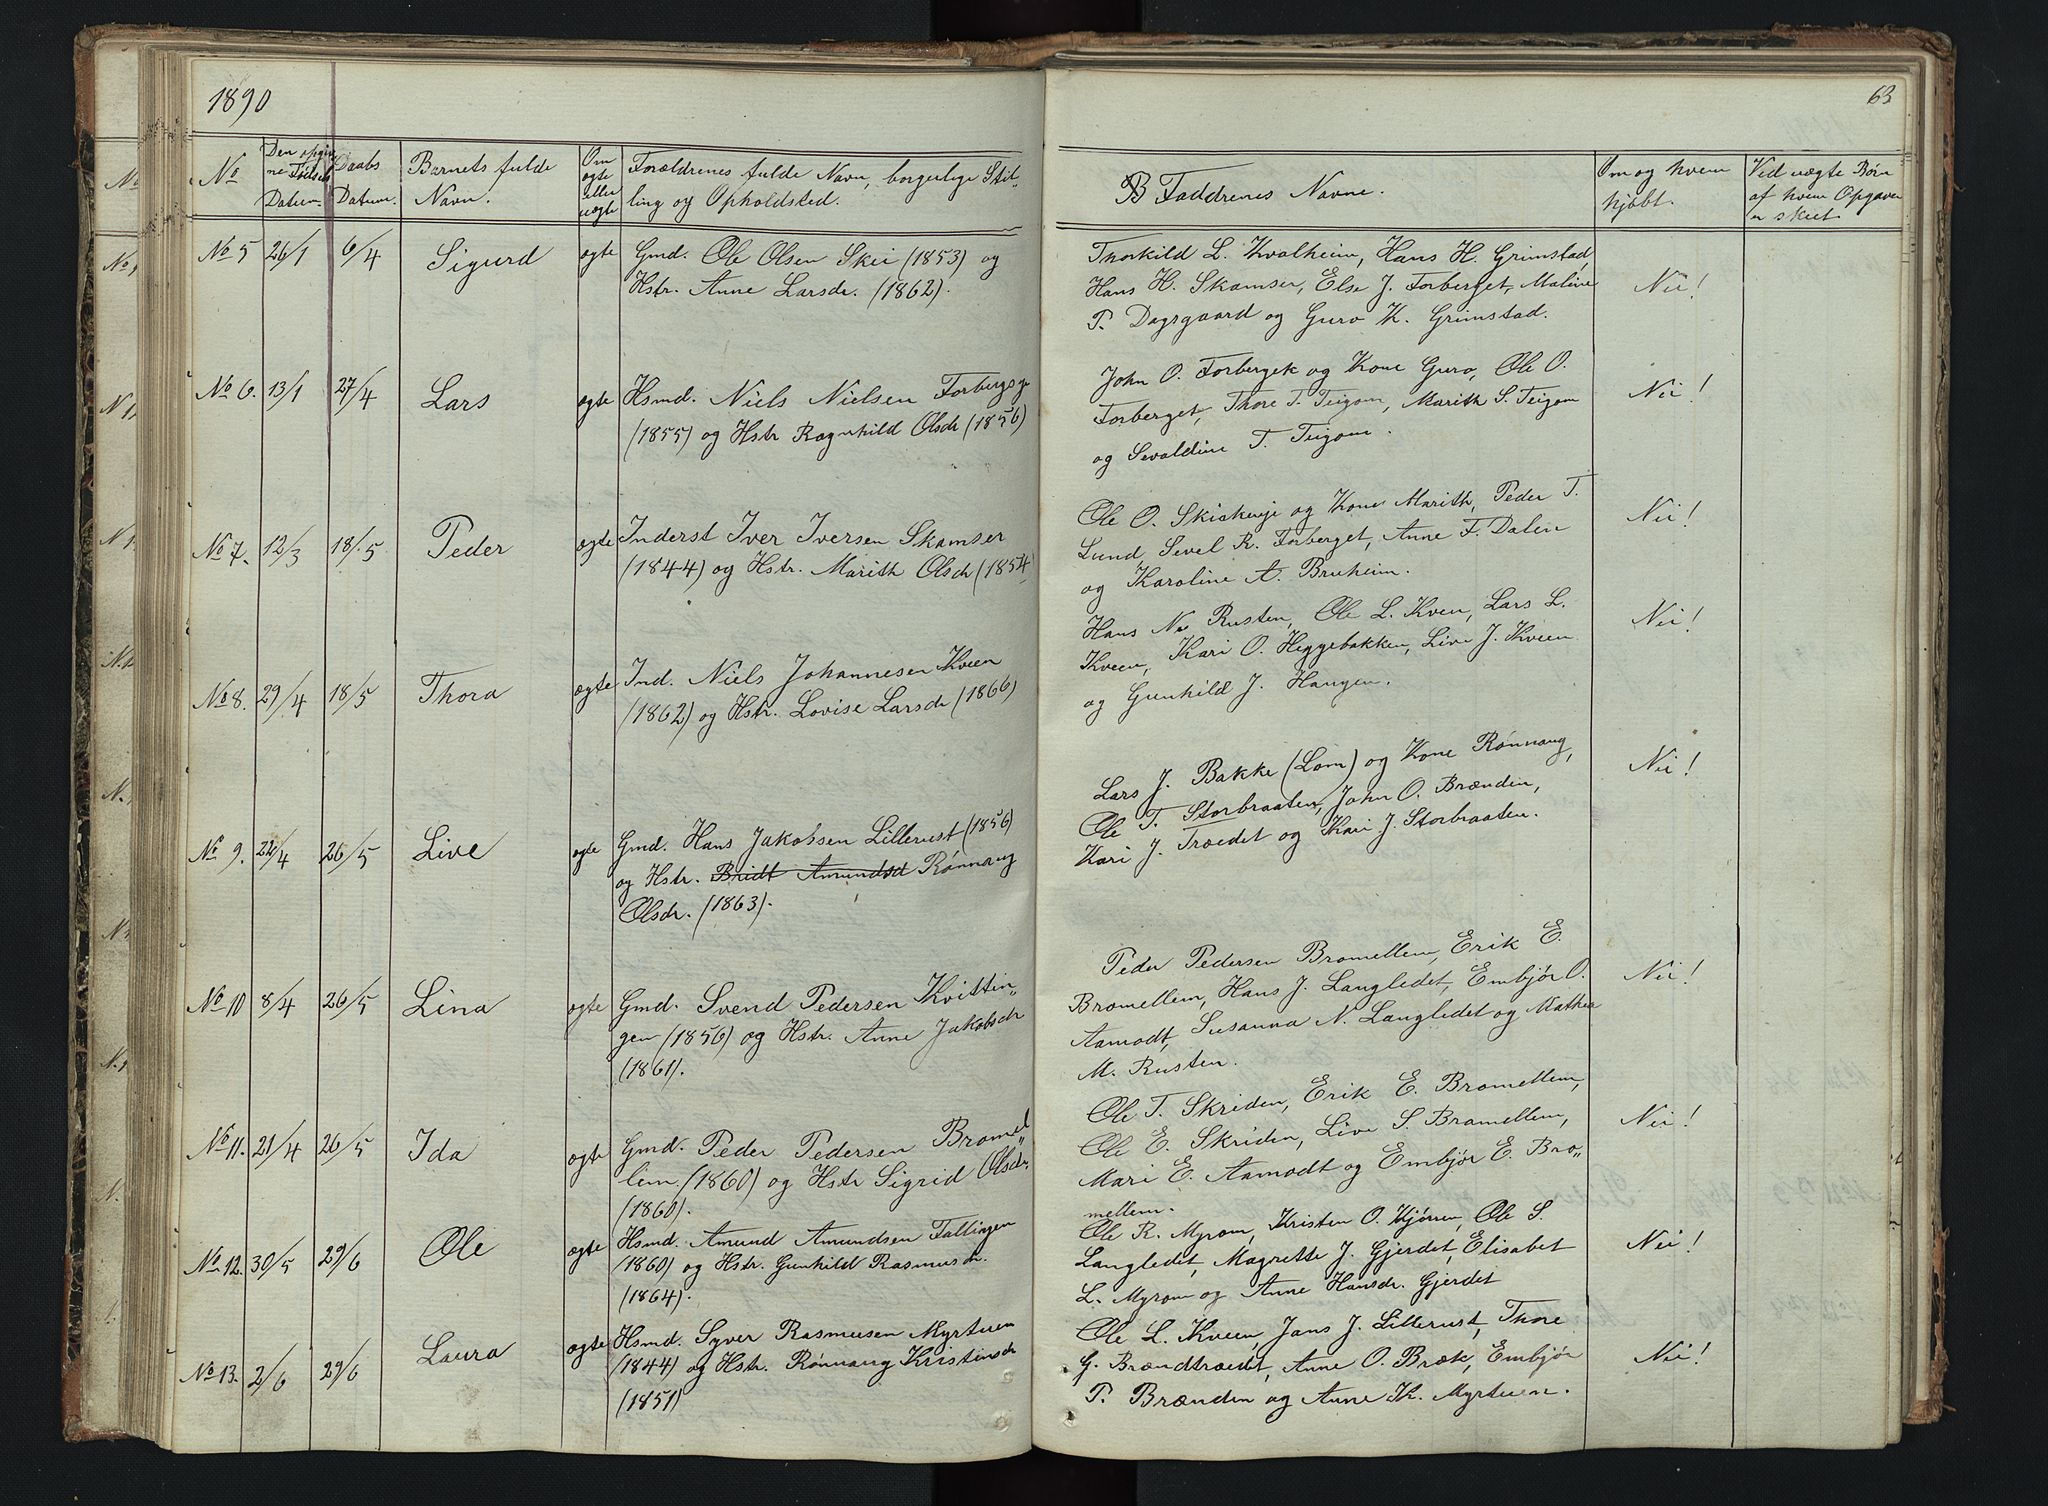 1890
63
No
Den opgivne Fødsels Datum.
Daabs Datum.
Barnets fulde Navn.
Om ægte eller uægte
Forældrenes fulde Navn, borgerlige Stilling og Opholdsted.
Faddrenes Navne.
Om og hvem hjøbt.
Ved uægte Børn af hvem Opgaven er skeet.
No 5 26/1 6/4 Sigurd ægte Gmd. Ole Olsen Skei (1853) og
Hstr. Anne Larsdr. (1862).
Thorkild L. Kvalheim, Hans H. Grimstad,
Hans H. Skamser, Else J. Forberget, Maline
P. Dagsgaard og Guro K. Grimstad.
Nei!
No 6. 13/1 27/4 Lars ægte Hsmd. Niels Nielsen Forbergsge
(1855) og Hstr Ragnhild Olsdr (1856)
John O. Forbergek og Kone Guro, Ole O.
Forberget, Thore T. Teigom, Marith S. Teigom
og Sevaldine T. Teigom.
Nei!
No 7. 12/3 18/5 Peder ægte Inderst Iver Iversen Skamser
(1844) og Hstr. Marith Olsdr (1854)
Ole O. Skiakeije og Kone Marith, Peder T.
Lund, Sevel R. Forberget, Anne F. Dalen
og Karoline A. Bruheim.
Nei!
No 8. 29/4 18/5 Thora ægte Ind. Niels Johannesen Kveen
(1862) og Hstr. Lovise Larsdr (1866)
Hans N. Rusten, Ole L. Kven, Lars L.
Kveen, Kari O. Heggebakken, Live J. Kveen
og Gunhild J. Haugen.
Nei!
No 9. 22/4 26/5 Live ægte Gmd. Hans Jakobsen Lillerust (1856)
og Hstr. Bridt Amundsd Rønnaug
Olsdr. (1863).
Lars J. Bakke (Lom) og Kone Rønnaug,
Ole T. Storbraaten, John O. Brænden,
Kari J. Træedet og Kari J. Storbraaten.
Nei!
No 10 8/4 26/5 Lina ægte Gmd. Svend Pedersen Kvittin„
gen (1856) og Hstr. Anne Jakobsdr
(1861).
Peder Pedersen Bromellem, Erik E.
Bromellem, Hans J. Langledet, Embjør O.
Aamodt, Susanna N. Langledet og Mathea
M. Rusten.
Nei!
No 11. 21/4 26/5 Ida ægte Gmd. Peder Pedersen Bromel„
lem. (1860) og Hstr Sigrid Olsdr.
(1860).
Ole T. Skriden, Erik E. Bromellem,
Ole E. Skriden, Live S. Bramellem,
Mari E. Aamodt og Embjør E. Bro„
mellem.
Nei!
No 12. 30/5 29/6 Ole ægte Hsmd. Amund Amundsen Fallingen
(1860) og Hstr. Gunhild Rasmusdr.
(1864).
Ole R. Myrom, Kristen O. Kjørren, Ole S.
Langledet, Magrette J. Gjerdet, Elisabet
L. Myrom og Anne Hansdr. Gjerdet
Nei!
No 13. 2/6 29/6 Laura ægte Hsmd. Syver Rasmusen Myrtuen
(1844) og Hstr. Rønnaug Kristensdr
(1851)
Ole L. Kveen, Jans J. Lillerust, Thore
G. Brændtroedet, Anne O. Bræk, Embjør
P. Brænden og Anne K. Myrtuen.
Nei!